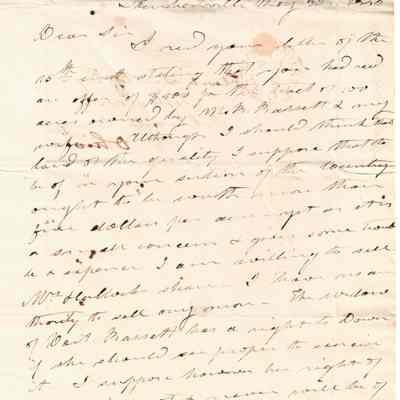 Steubenville May
Dear Sir
I recd your letter of the
10th inst stating that you had recd
an offer of $400 for the tract of 100
acres owned by Mr. Bassett & my
Although I should think that
land of the quality I suppose that to
be of in your section of the Country
ought to be worth more than
four dollars per acre yet as it is
a small concern & gives some trouble
& expense I am willing to sell
Mrs share. I have no au
thority to sell any more. The widow
of Bassett has a right to Dower
if she should see proper to exercise
it I suppose however her right of
never will be of